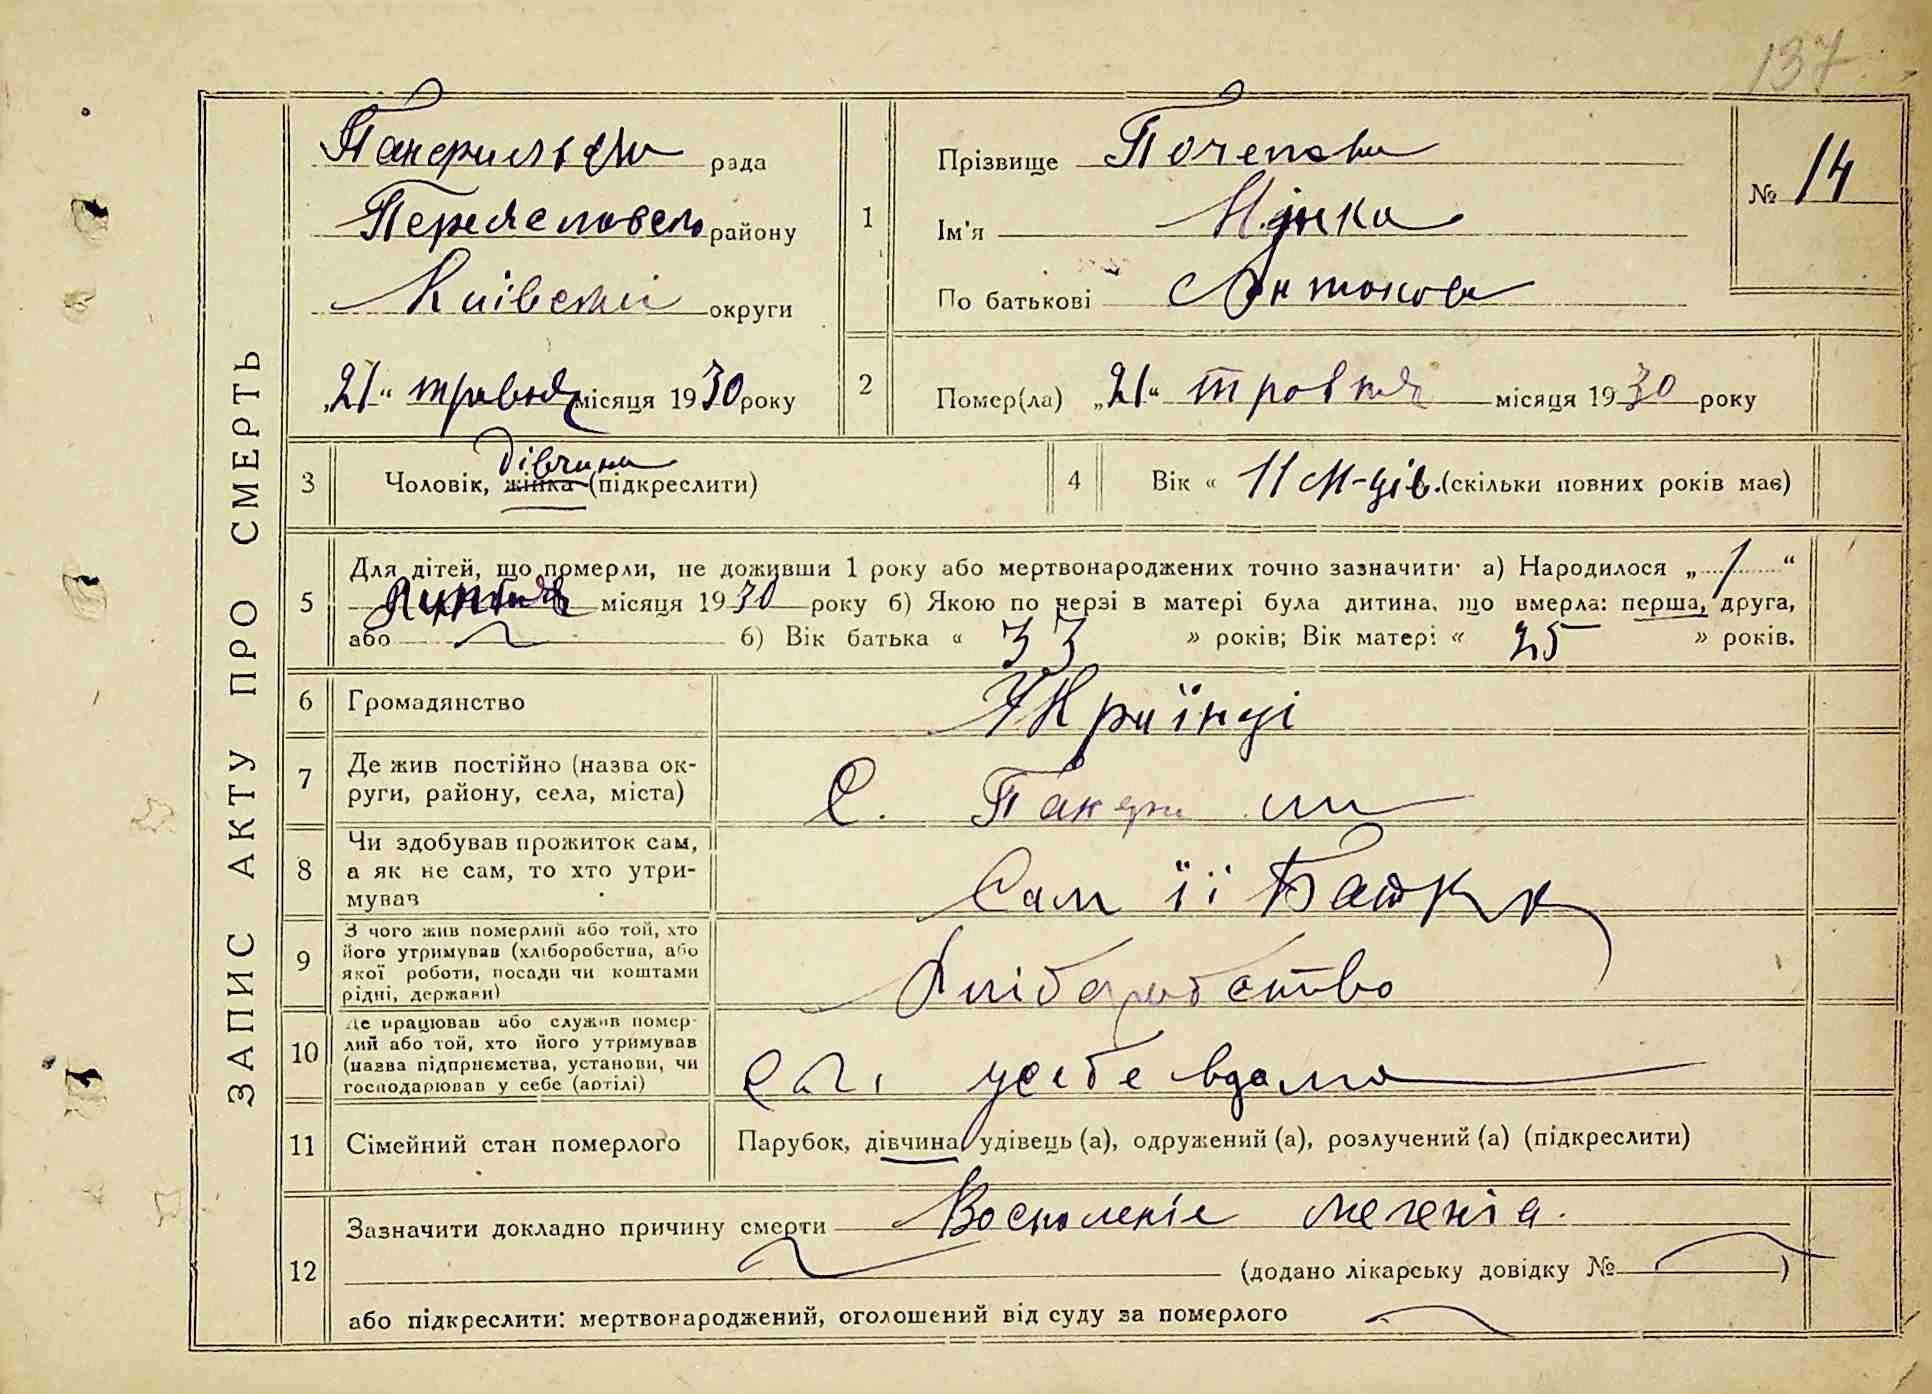 137
ЗАПИС АКТУ ПРО СМЕРТЬ
рада
району
Київської округи
„21“ травня місяця 1930 року
1
Прізвище
Ім'я
По батькові
№ 14
2
Помер(ла) „21“ травня місяця 1930 року
3
дівчина
Чоловік, жінка (підкреслити)
4
Вік « 11 м-ців. (скільки повних років має)
5
Для дітей, що померли, не доживши 1 року або мертвонароджених точно зазначити: а) Народилося „ 1 “
місяця 1930 року б) Якою по черзі в матері була дитина, що вмерла: перша, друга,
або б) Вік батька « 33 » років; Вік матері « 25 » років.
6
Громадянство
Українці
7
Де жив постійно (назва ок-
руги, району, села, міста)
С. Панфили
8
Чи здобував прожиток сам,
а як не сам, то хто утри-
мував
Сам її Батько
9
З чого жив померлий або той, хто
його утримував (хліборобства, або
якої роботи, посади чи коштами
рідні, держави)
Хліборобство
10
Де працював або служив помер-
лий або той, хто його утримував
(назва підприємства, установи, чи
господарював у себе (артілі)
усебе вдома
11
Сімейний стан померлого
Парубок, дівчина, удівець (а), одружений (а), розлучений (а) (підкреслити)
12
Зазначити докладно причину смерти Восполеніе легенія.
(додано лікарську довідку № )
або підкреслити: мертвонароджений, оголошений від суду за померлого